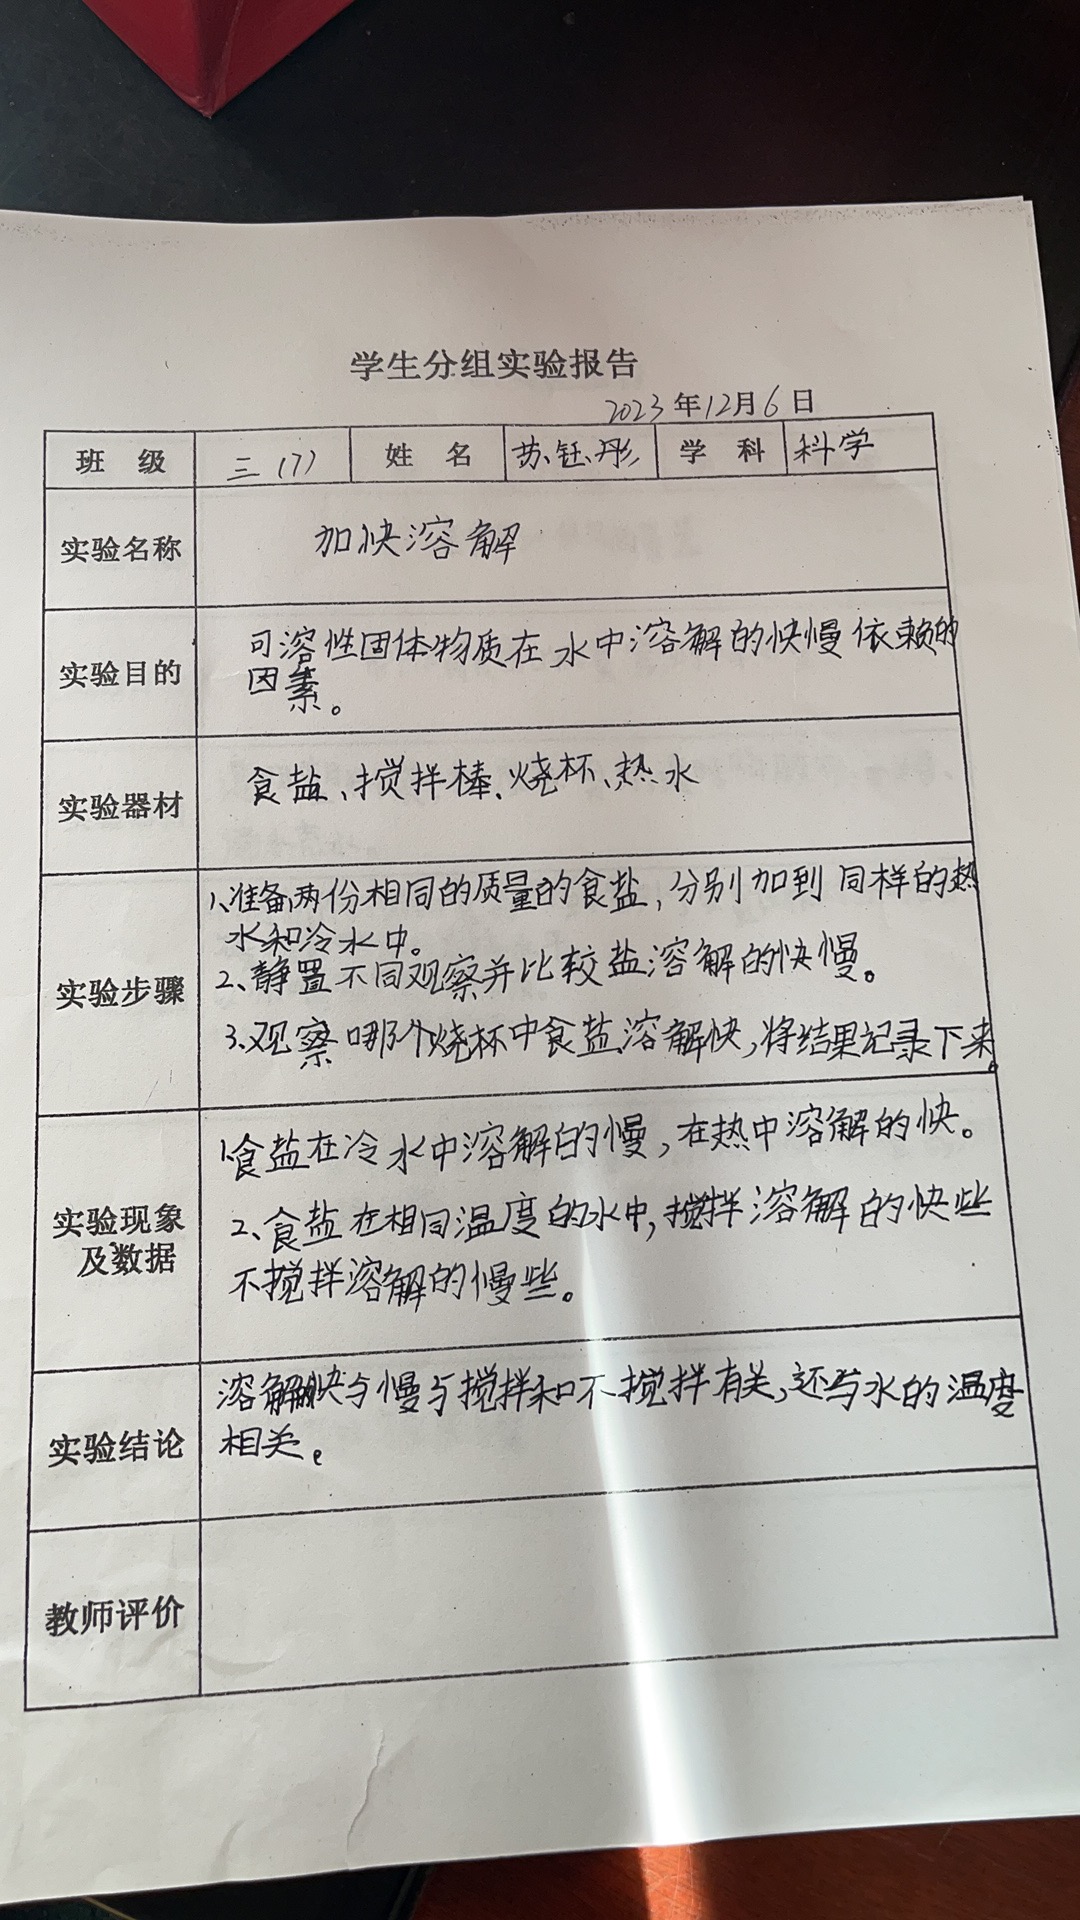 学生分组实验报告
2023年12月6日
班 级 三(7) 姓 名 苏钰彤 学 科 科学
实验名称 加快溶解
实验目的 可溶性固体物质在水中溶解的快慢依赖的
因素。
实验器材 食盐、搅拌棒、烧杯、热水
实验步骤
1、准备两份相同的质量的食盐,分别加到同样的热
水和冷水中。
2、静置不同观察并比较盐溶解的快慢。
3、观察哪个烧杯中食盐溶解快,将结果记录下来。
实验现象
及数据
1、食盐在冷水中溶解的慢,在热中溶解的快。
2、食盐在相同温度的水中,搅拌溶解的快些
不搅拌溶解的慢些。
实验结论
溶解快与慢与搅拌和不搅拌有关,还与水的温度
相关。
教师评价